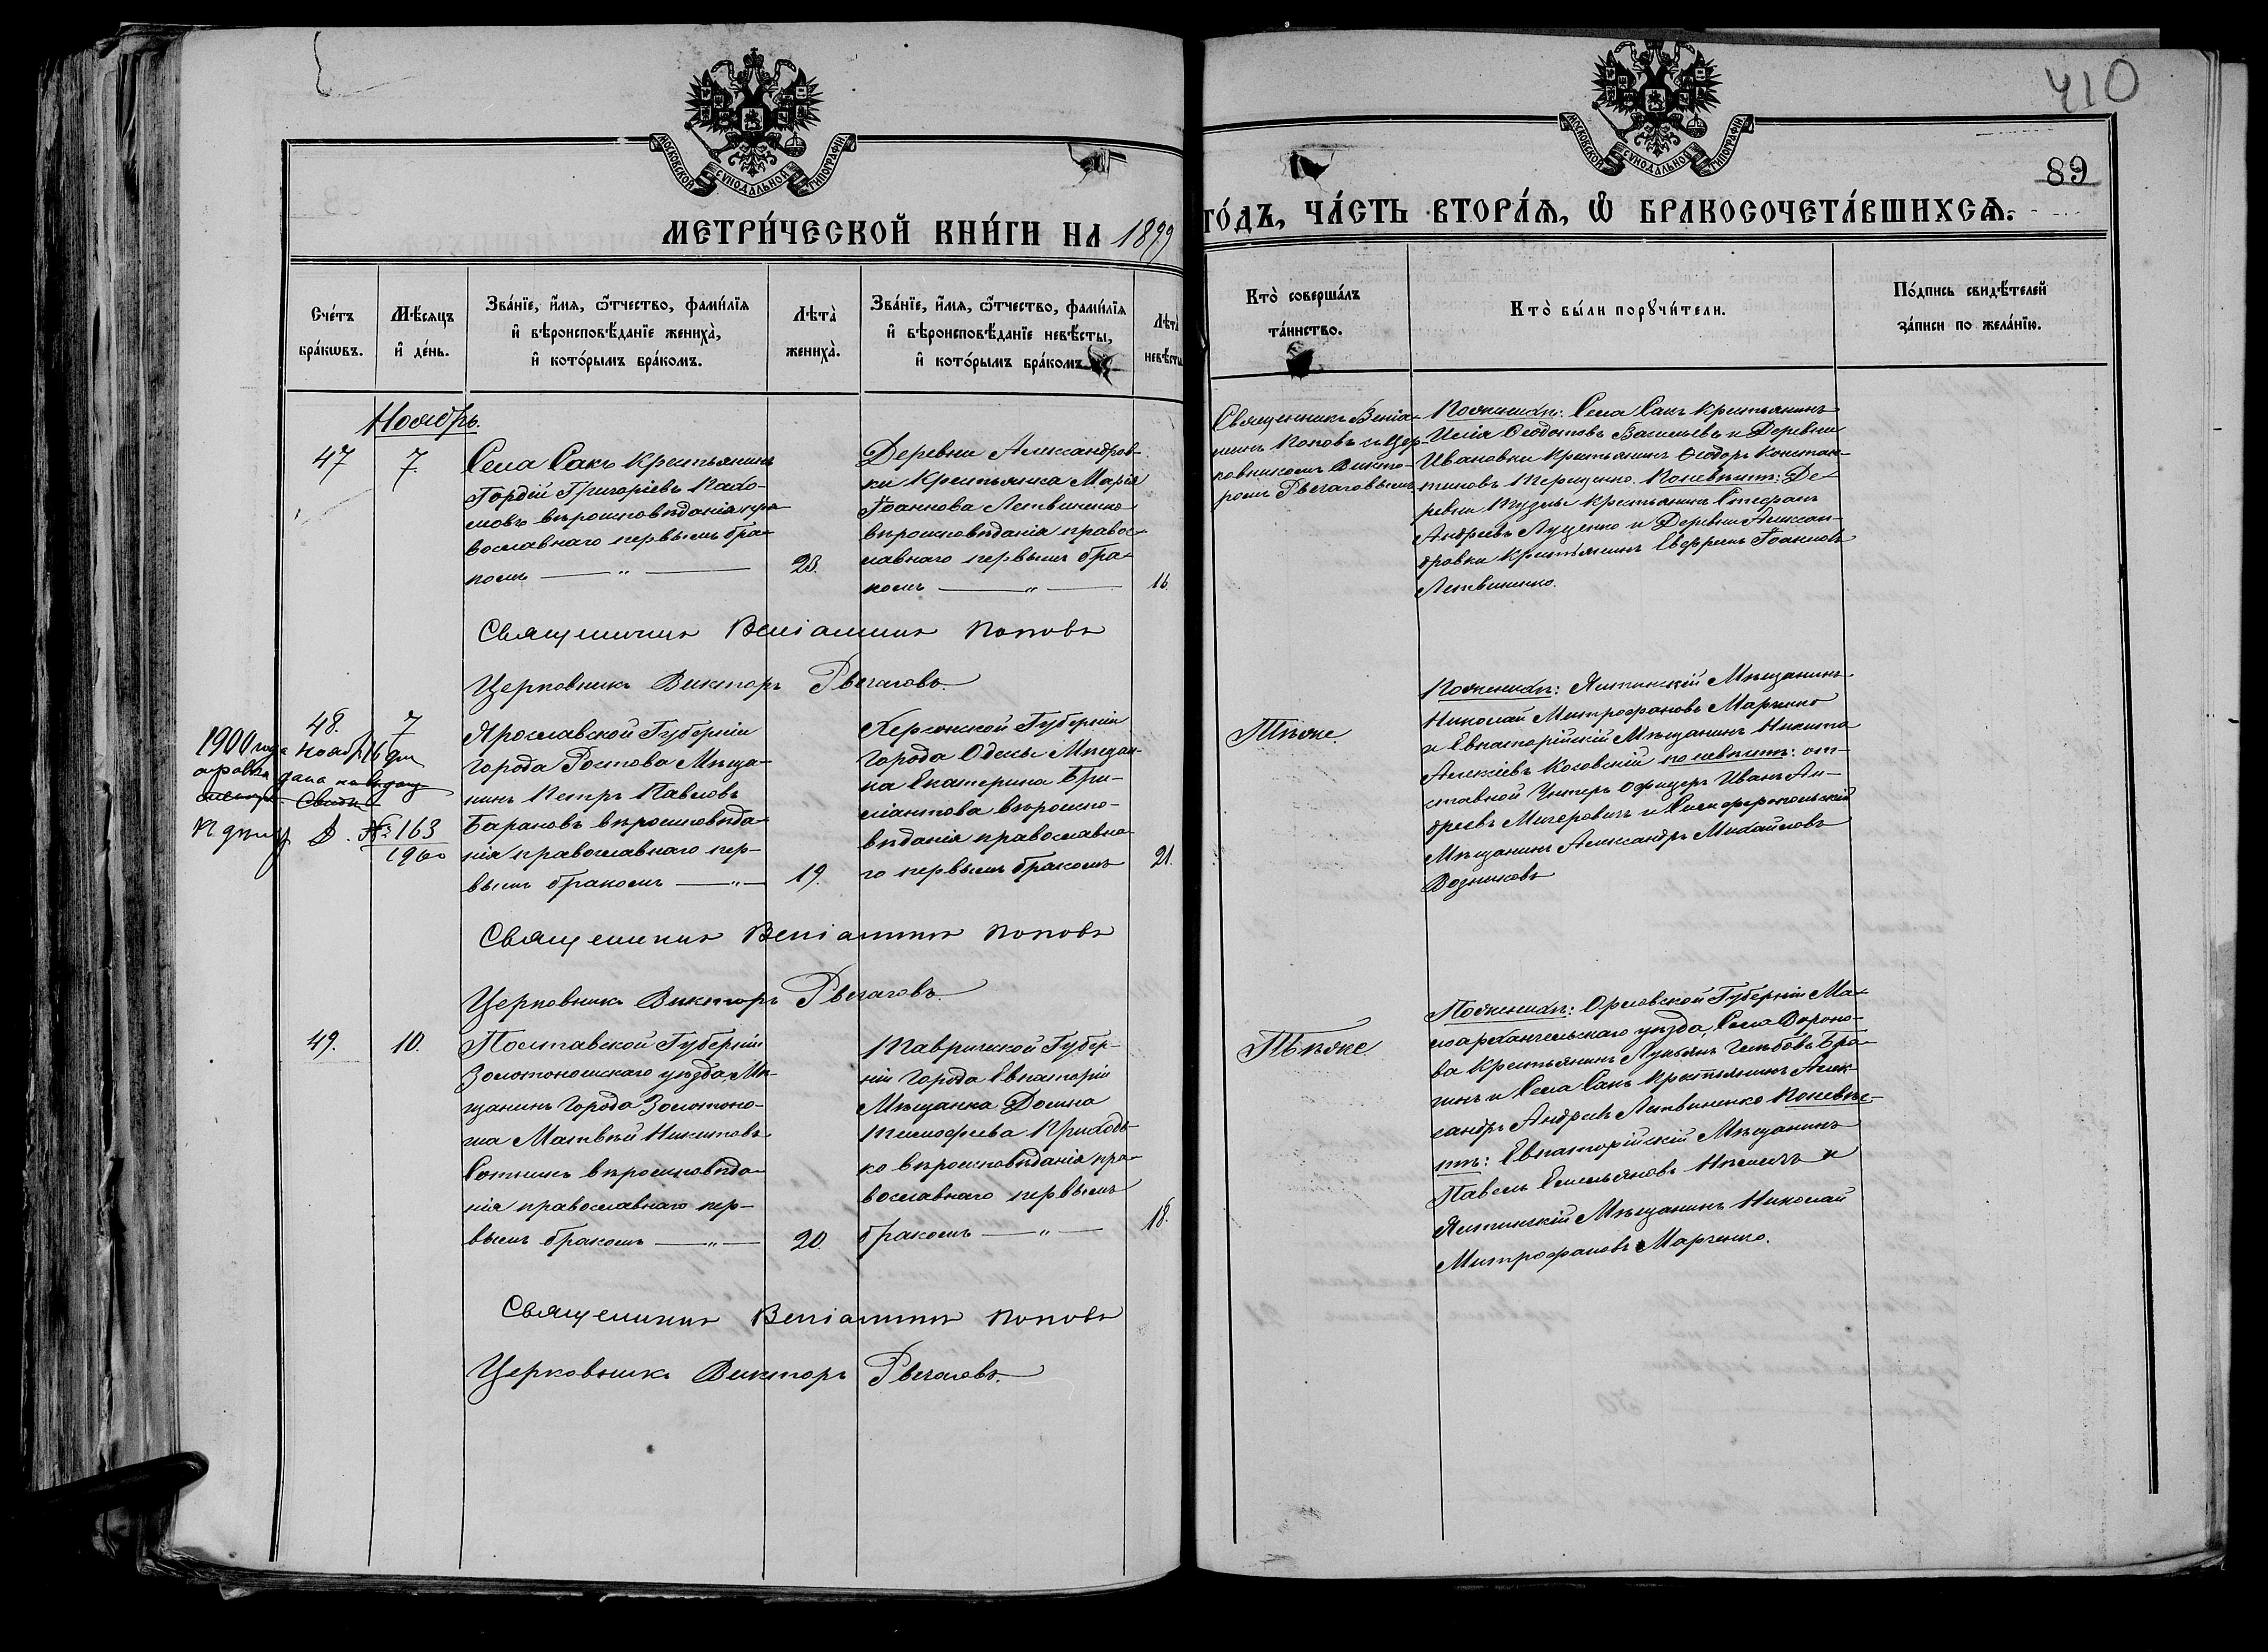 410
89
МОСКОВСКОЙ СУНОДАЛЬНОЙ ТИПОГРАФІИ
МОСКОВСКОЙ СУНОДАЛЬНОЙ ТИПОГРАФІИ
МЕТРИ́ЧЕСКОЙ КНИ́ГИ НА 1899
ГО́ДЪ, ЧА́СТЬ ВТОРА́Ѧ, Ѽ БРАКОСОЧЕТА́ВШИХСѦ.
Сче́тъ
бра́кѡвъ.
Мѣ́сяцъ
и҆ де́нь.
Зва́нїе, и҆́мя, ѻ҆́тчество, фами́лїя
и҆ вѣроисповѣ́данїе жениха̀,
и҆ кото́рымъ бра́комъ.
Лѣта̀
жениха̀.
Зва́нїе, и҆́мя, ѻ҆́тчество, фами́лїя
и҆ вѣроисповѣ́данїе невѣ́сты,
и҆ кото́рымъ бра́комъ.
Лѣта̀
невѣ́сты
Кто̀ соверша́лъ
та́инство.
Кто̀ бы́ли порꙋчи́тели.
По́дпись свидѣ́телей
за́писи по жела́нїю.
Ноябрь.
47
7.
Села Сакъ Крестьянинъ
Гордій Григоріевъ Пахо-
мовъ вѣроисповѣданія пра-
вославнаго первымъ бра-
комъ — „ —
23.
Деревни Александров-
ки Крестьянка Марія
Іоаннова Литвиненко
вѣроисповѣданія правос-
лавнаго первымъ бра-
комъ — „ —
16.
Священникъ Веніа-
минъ Поповъ съ Цер-
ковникомъ Викто-
ромъ Рвачовымъ
По женихѣ: Села Сакъ Крестьянинъ
Илія Ѳеодотовъ Васильевъ и Деревни
Ивановки Крестьянинъ Ѳеодоръ Констан-
тиновъ Терещенко. По невѣстѣ: Де-
ревни Тузлы Крестьянинъ Стефанъ
Андреевъ Луценко и Деревни Александ-
дровки Крестьянинъ Ефремъ Іоанновъ
Литвиненко.
Священникъ Веніаминъ Поповъ
Церковникъ Викторъ Рвачовъ.
48.
7
1900 года Ноября 16 дня
справка дана
№ 163
1900
Ярославской Губерніи
города Ростова Мѣща-
нинъ Петръ Павловъ
Барановъ вѣроисповѣда-
нія православнаго пер-
вымъ бракомъ — „ —
19.
Херсонской Губерніи
Города Одессы Мѣщан-
ка Екатерина Бри-
лиантова вѣроиспо-
вѣданія православна-
го первымъ бракомъ
21.
Тѣже.
По женихѣ: Ялтинскій Мѣщанинъ
Николай Митрофановъ Марченко
и Евпаторійскій Мѣщанинъ Никита
Алексіевъ Косовскій по невѣстѣ: от-
ставной Унтеръ Офицеръ Иванъ Ан-
дреевъ Мигеровичъ и Симферопольскій
Мѣщанинъ Александръ Михайловъ
Возниковъ
Священникъ Веніаминъ Поповъ
Церковникъ Викторъ Рвачовъ.
49.
10.
Полтавской Губерніи
Золотоношскаго уѣзда, Мѣ-
щанинъ города Золотоно-
ша Матвѣй Никитовъ
Сотникъ вѣроисповѣда-
нія православнаго пер-
вымъ бракомъ — „ —
20.
Таврической Губер-
ніи Города Евпаторіи
Мѣщанка Домна
Тимофеева Приходь-
ко вѣроисповѣданія пра-
вославнаго первымъ
бракомъ — „ —
18.
Тѣже
По женихѣ: Орловской Губерніи Ма-
лоархангельскаго уѣзда, Села Вороно-
ва Крестьянинъ Лукьянъ Глѣбовъ Бра-
гинъ и Села Сакъ Крестьянинъ Алек-
сандръ Андреевъ Литвиненко По невѣс-
тѣ: Евпаторійскій Мѣщанинъ
Павелъ Емельяновъ Нѣмичъ и
Ялтинскій Мѣщанинъ Николай
Митрофановъ Марченко.
Священникъ Веніаминъ Поповъ
Церковникъ Викторъ Рвачовъ.